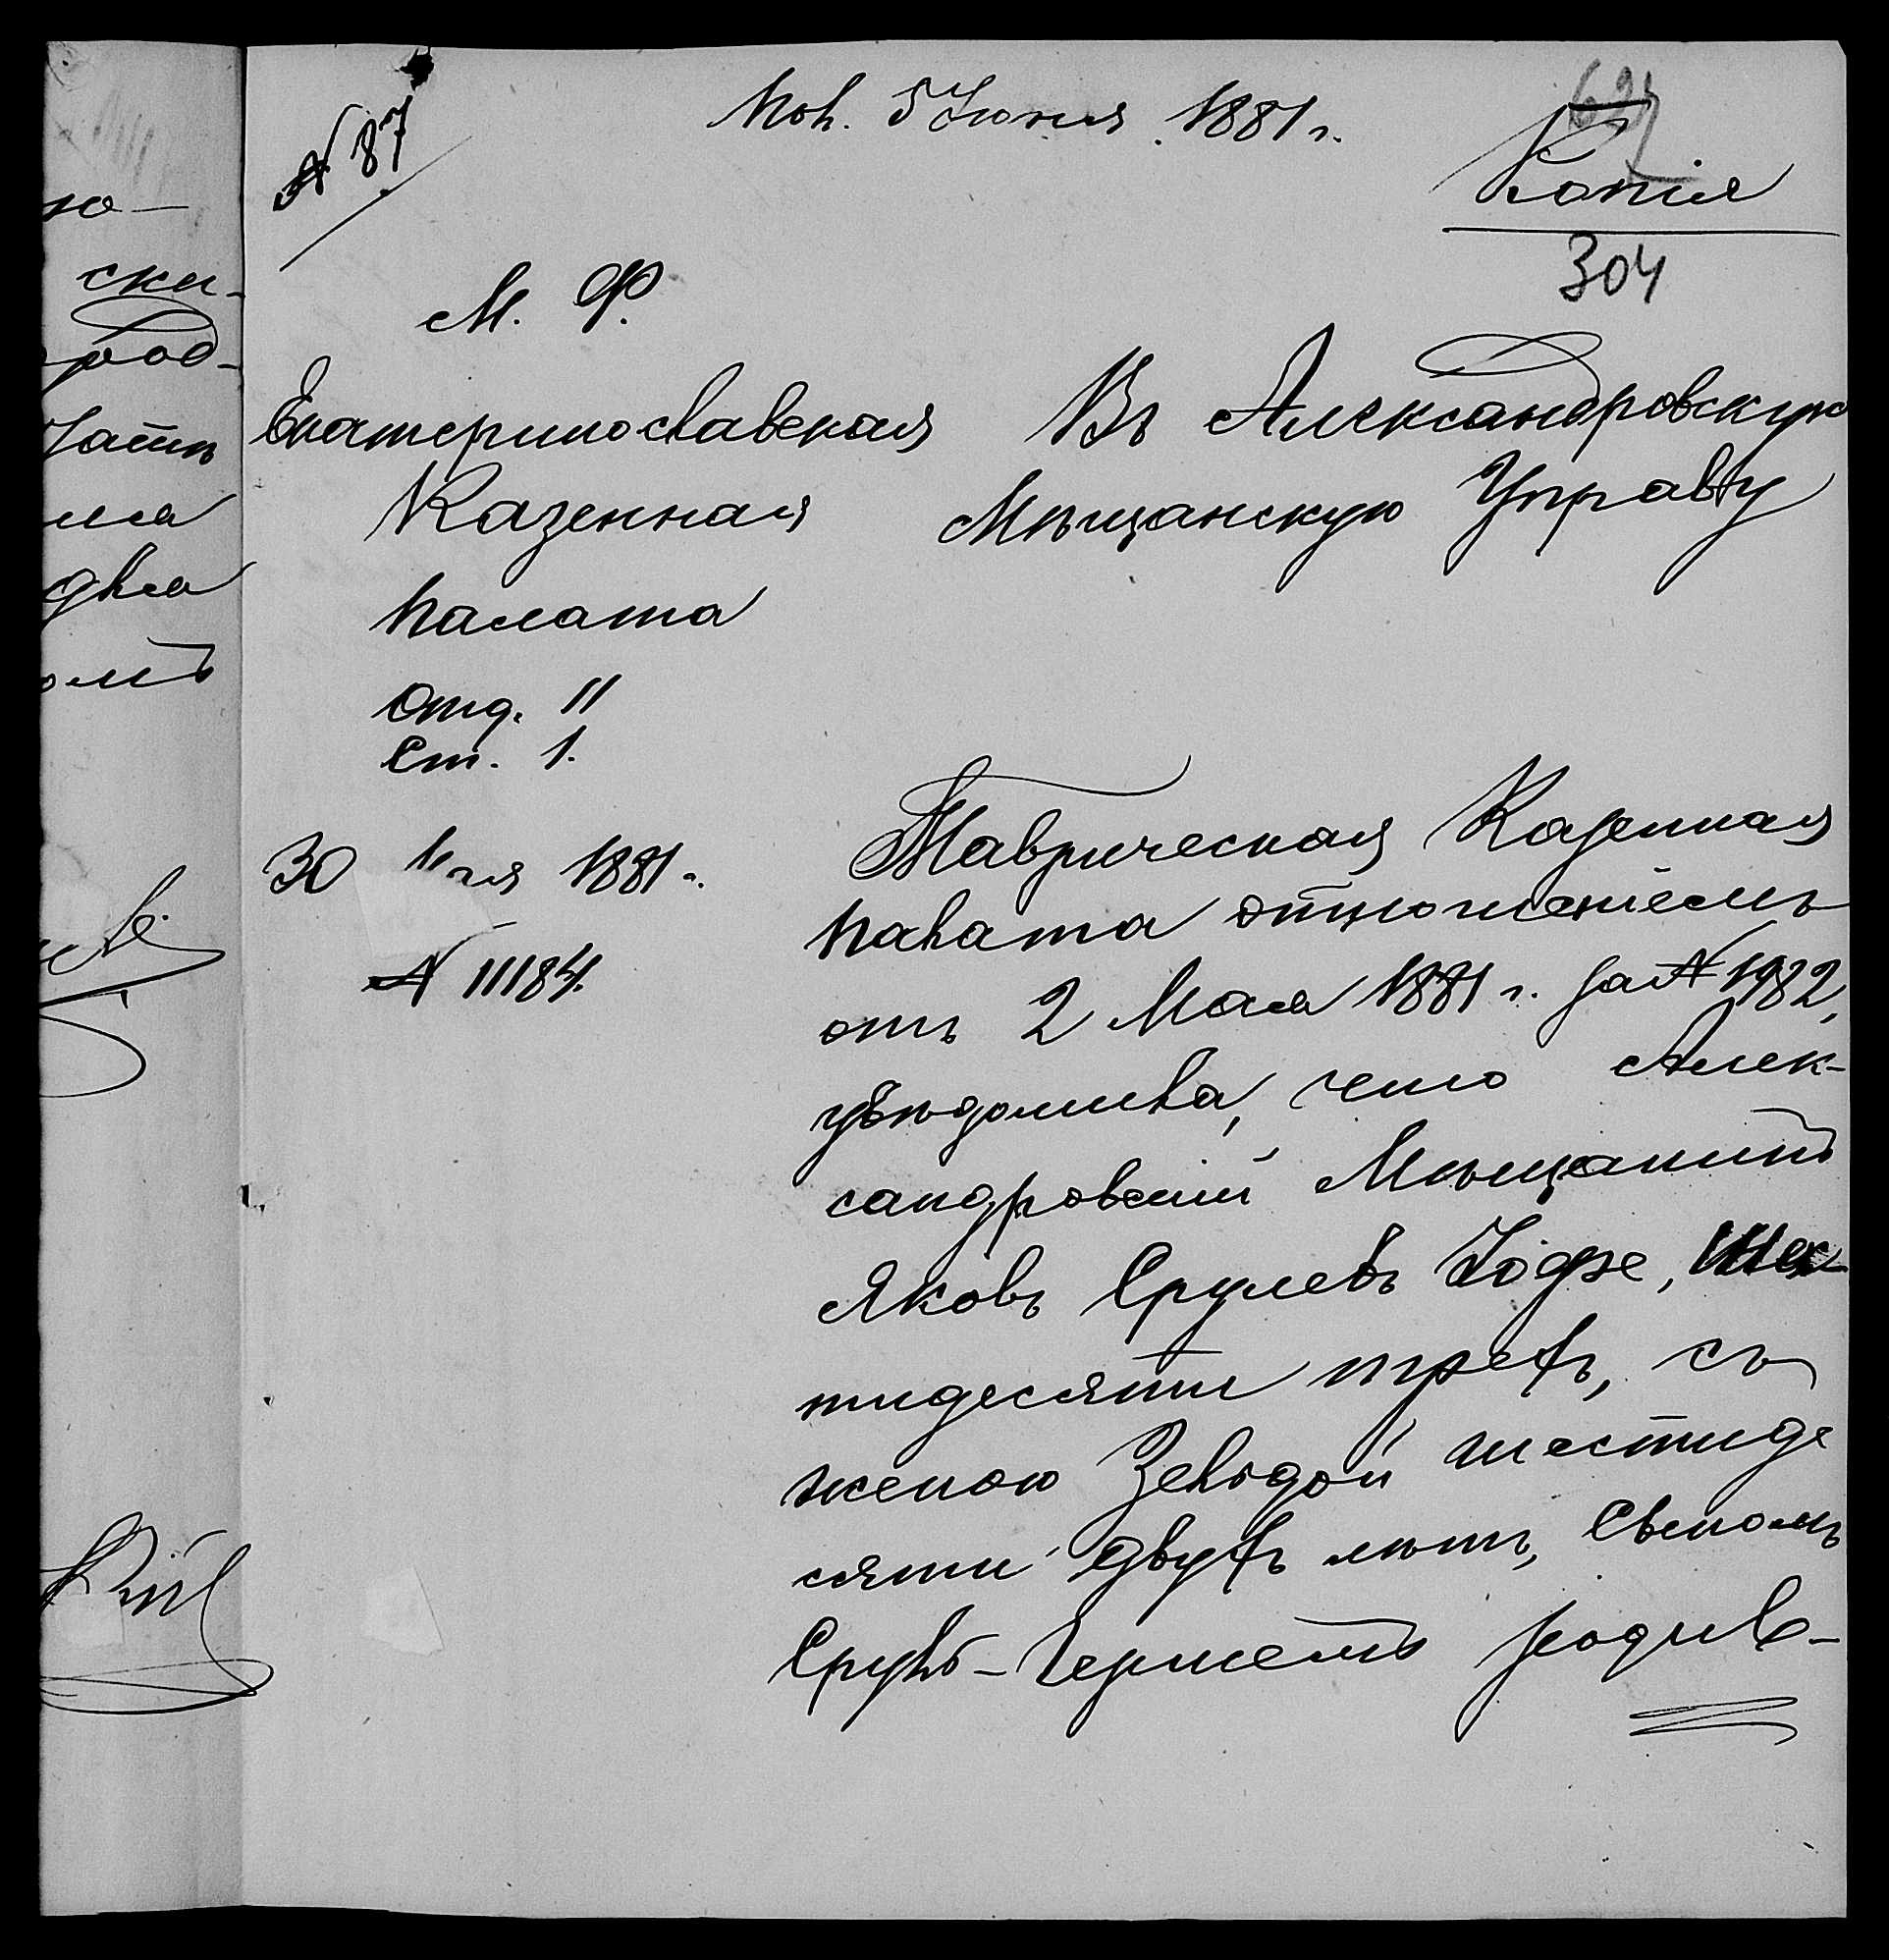 № 87
Пол. 5 Іюня 1881 г.
Копія
304
М. Ф.
Екатеринославская
Казенная
Палата
Отд. II
Ст. 1.
30 Мая 1881 г.
№ 11184.
Въ Александровскую
Мѣщанскую Управу
Таврическая Казенная
Палата отношеніемъ
отъ 2 Мая 1881 г. за № 1982,
увѣдомила, что Алек-
сандровскій Мѣщанинъ
Яковъ Срулевъ Іофе, шес-
тидесяти трехъ, съ
женою Зельдой шестиде
сяти двухъ лѣтъ, Сыномъ
Сруль-Гершемъ родив-